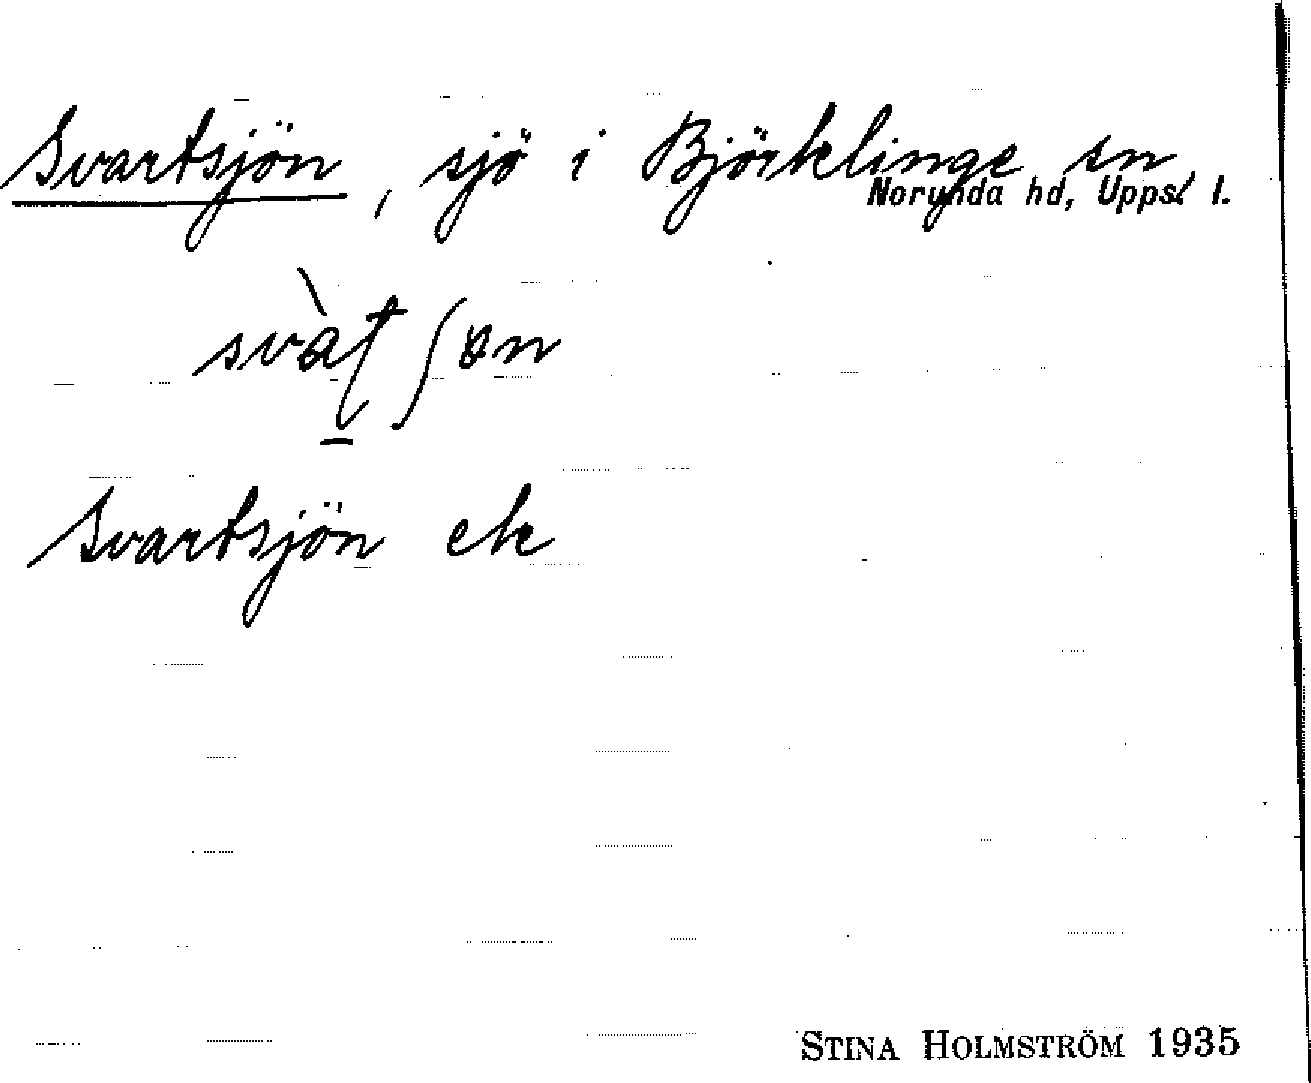 Svartsjön, sjö i Björklinge sn
Norunda hd, Upps. l.
svàt̠ ʃɵn
Svartsjön ek
STINA HOLMSTRÖM 1935